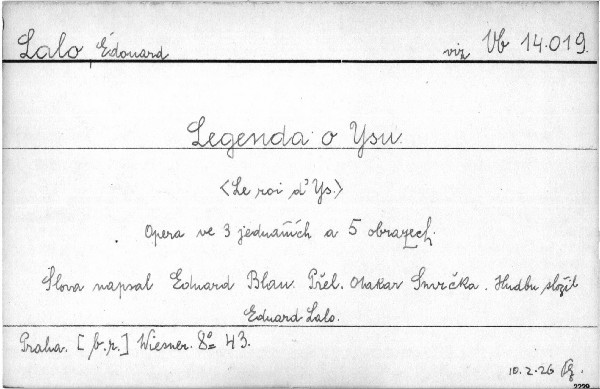 Lalo Édouard viz Vb 14.019.
Legenda o Ysu.
<Le roi d'Ys.>
Opera ve 3 jednáních a 5 obrazech.
Slova napsal Eduard Blau. Přel. Otakar Smrčka. Hudbu složil
Eduard Lalo.
Praha. [b.r.] Wiesner. 8° 43.
10.2.26
2229